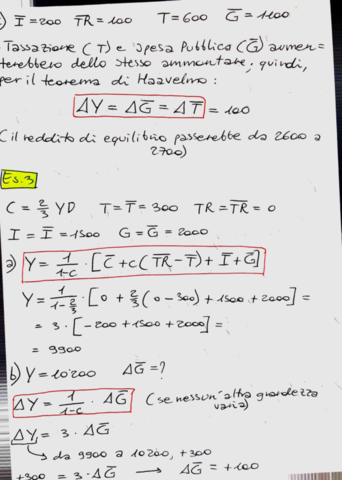 ) Ī = 200 T̄R̄ = 100 T = 600 Ḡ = 1100
Tassazione (T) e Spesa Pubblica (Ḡ) aumen=
terebbero dello stesso ammontare; quindi,
per il teorema di Haavelmo:
ΔY = ΔḠ = ΔT̄ = 100
(il reddito di equilibrio passerebbe da 2600 a
2700)
Es.3
C = 2/3 YD T = T̄ = 300 TR = T̄R̄ = 0
I = Ī = 1500 G = Ḡ = 2000
a) Y = 1/(1-c) · [C̄ + c(T̄R̄ - T̄) + Ī + Ḡ]
Y = 1/(1-2/3) · [0 + 2/3 (0-300) + 1500 + 2000] =
= 3 · [-200 + 1500 + 2000] =
= 9900
b) Y = 10200 ΔḠ = ?
ΔY = 1/(1-c) · ΔḠ (se nessun'altra grandezza
varia)
ΔY = 3 · ΔḠ
↳ da 9900 a 10200, +300
+300 = 3 · ΔḠ → ΔḠ = +100